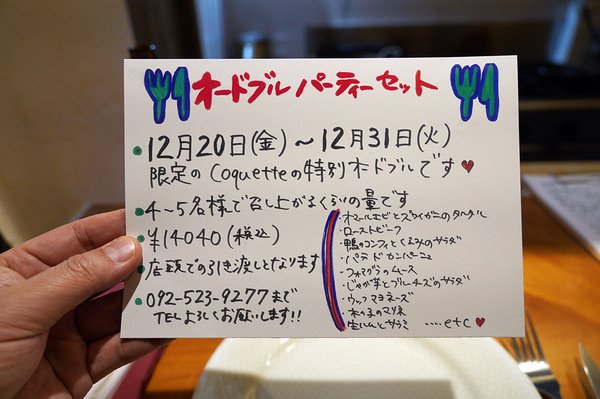 オードブル パーティーセット
12月20日(金)～12月31日(火)
限定の Coquetteの特別オードブルです♥
4～5名様で召し上がるくらいの量です
¥14040(税込)
店頭での引き渡しとなります
092-523-9277まで
TELよろしくお願いします!!
・オマールエビとズワイガニのタルタル
・ローストビーフ
・鴨のコンフィとくるみのサラダ
・パテ ド カンパーニュ
・フォアグラのムース
・じゃが芋とブルーチーズのサラダ
・ウッフ マヨネーズ
・木の子のマリネ
・生ハムとサラミ ....etc♥